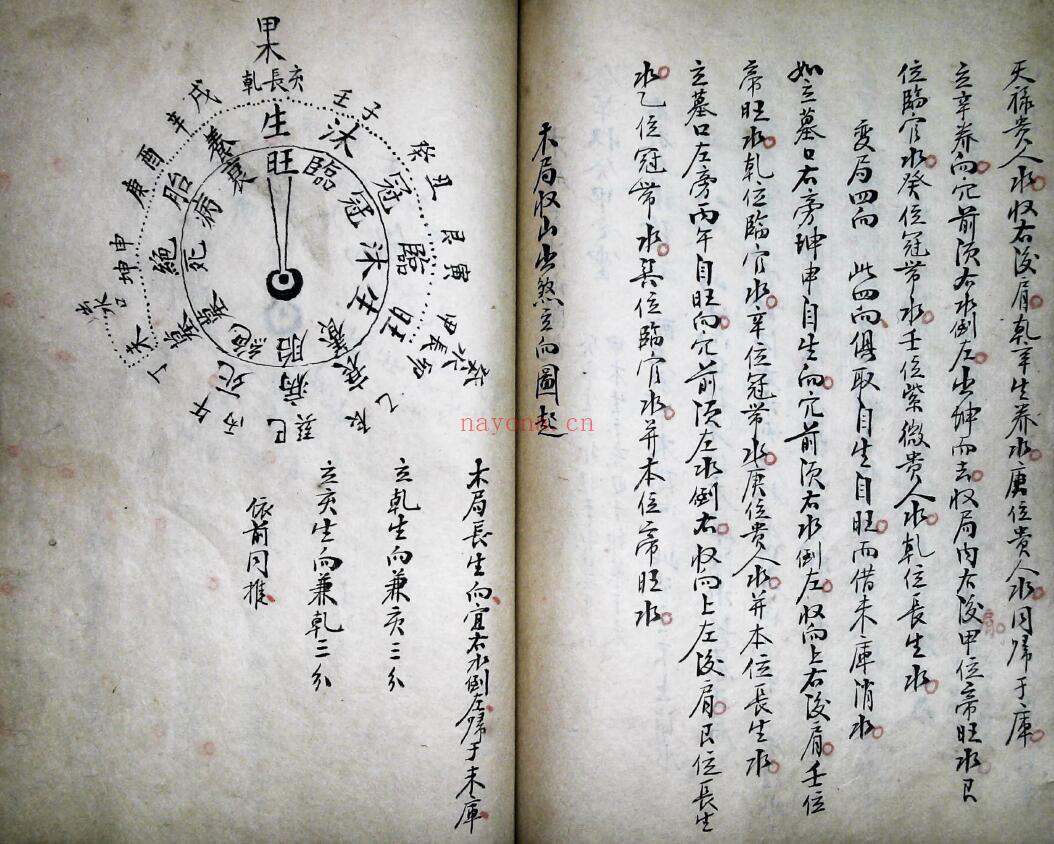 天祿貴人水收右後肩乾羊生养水庚位貴人水同歸于庫
立辛养向穴前須右水倒左出坤而去収局内右後肩甲位帝旺水艮
位臨官水癸位冠帶水壬位紫微貴人水乾位長生水
变局四向 此四向俱取自生自旺而借未庫消水
如立墓口右旁坤申自生向穴前須右水倒左收向上右後肩壬位
帝旺水乾位臨官水辛位冠帶水庚位貴人水并本位長生水
立墓口左旁丙午自旺向穴前須左水倒右收向上左後肩艮位長生
水乙位冠帶水巽位臨官水并本位帝旺水
木局収山出煞立向圖起
木局長生向宜右水倒左歸于未庫
立乾生向兼亥三分
立亥生向兼乾三分
依前同推
甲木
乾長亥
壬子
癸丑
艮寅
甲長卯
乙
巽巳
丙午
丁未
坤申
庚酉
辛戌
生沐冠臨旺衰病死墓絕胎養
旺臨冠沐生養胎絕墓死病衰
nayona.cn